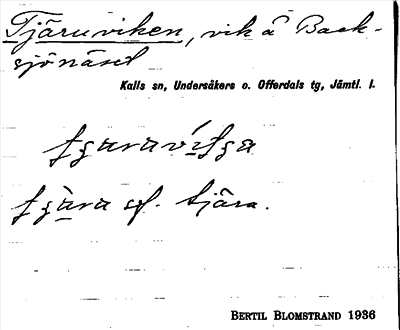 Tjäruviken, vik å Back-
sjönäset
Kalls sn, Undersåkers o. Offerdals tg, Jämtl. l.
sf. tjära.
BERTIL BLOMSTRAND 1936